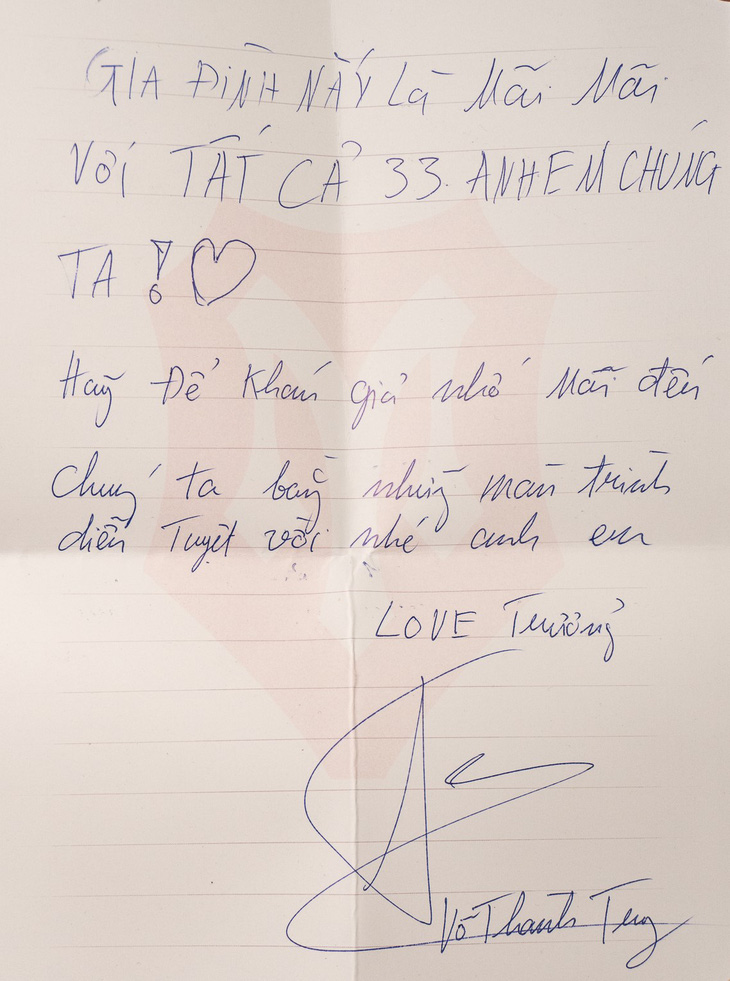 GIA ĐÌNH NÀY Là Mãi Mãi
Với TẤT CẢ 33 ANH EM CHÚNG
TA !
Hãy Để Khán giả nhớ Mãi đến
Chúng ta bằng những màn trình
diễn Tuyệt vời nhé anh em
LOVE Trưởng
Võ Thanh